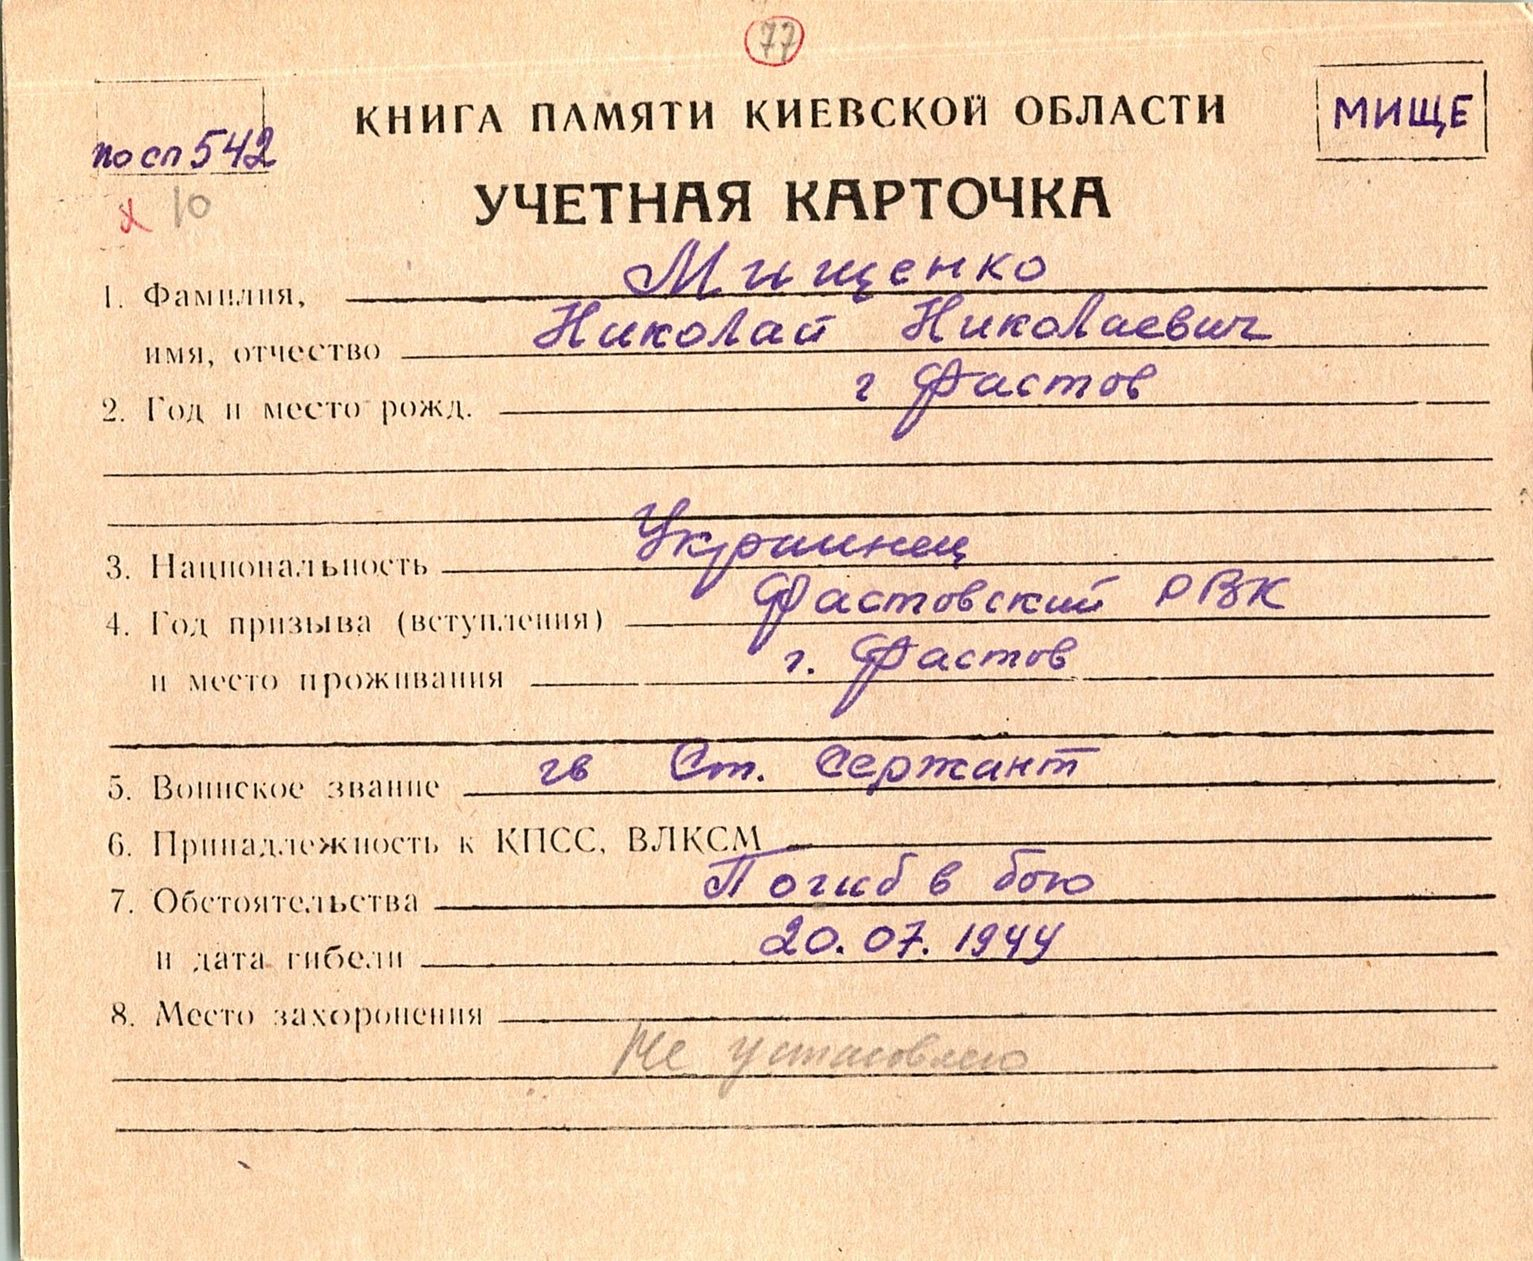 77
КНИГА ПАМЯТИ КИЕВСКОЙ ОБЛАСТИ
МИЩЕ
по сп 542
х 10
УЧЕТНАЯ КАРТОЧКА
1. Фамилия, Мищенко
имя, отчество Николай Николаевич
2. Год и место рожд. г Фастов
3. Национальность Украинец
4. Год призыва (вступления) Фастовский РВК
и место проживания г. Фастов
5. Воинское звание гв Ст. Сержант
6. Принадлежность к КПСС, ВЛКСМ —
7. Обстоятельства Погиб в бою
и дата гибели 20.07.1944
8. Место захоронения
Не установлено